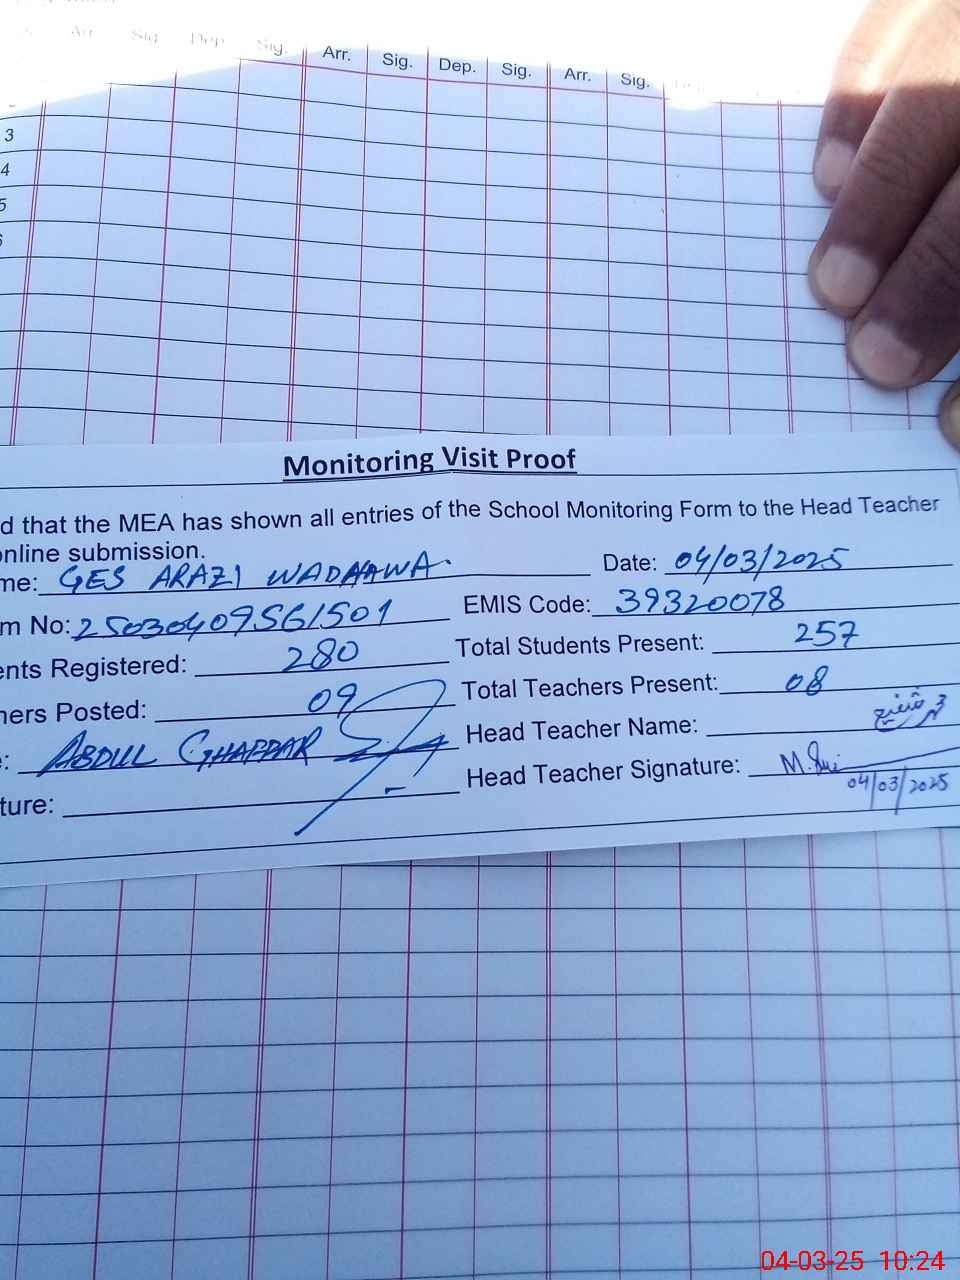 Arr. Sig. Dep. Sig. Arr. Sig. Dep. Sig. Arr. Sig.
3
4
5
6
Monitoring Visit Proof
d that the MEA has shown all entries of the School Monitoring Form to the Head Teacher
online submission.
me: GES ARAZI WADHAWA. Date: 04/03/2025
m No: 25030409561501 EMIS Code: 39320078
ents Registered: 280 Total Students Present: 257
hers Posted: 09 Total Teachers Present: 08
: ABDUL GHAFFAR Head Teacher Name: محمد شفیع
ture: Head Teacher Signature:
04/03/2025
04-03-25 10:24